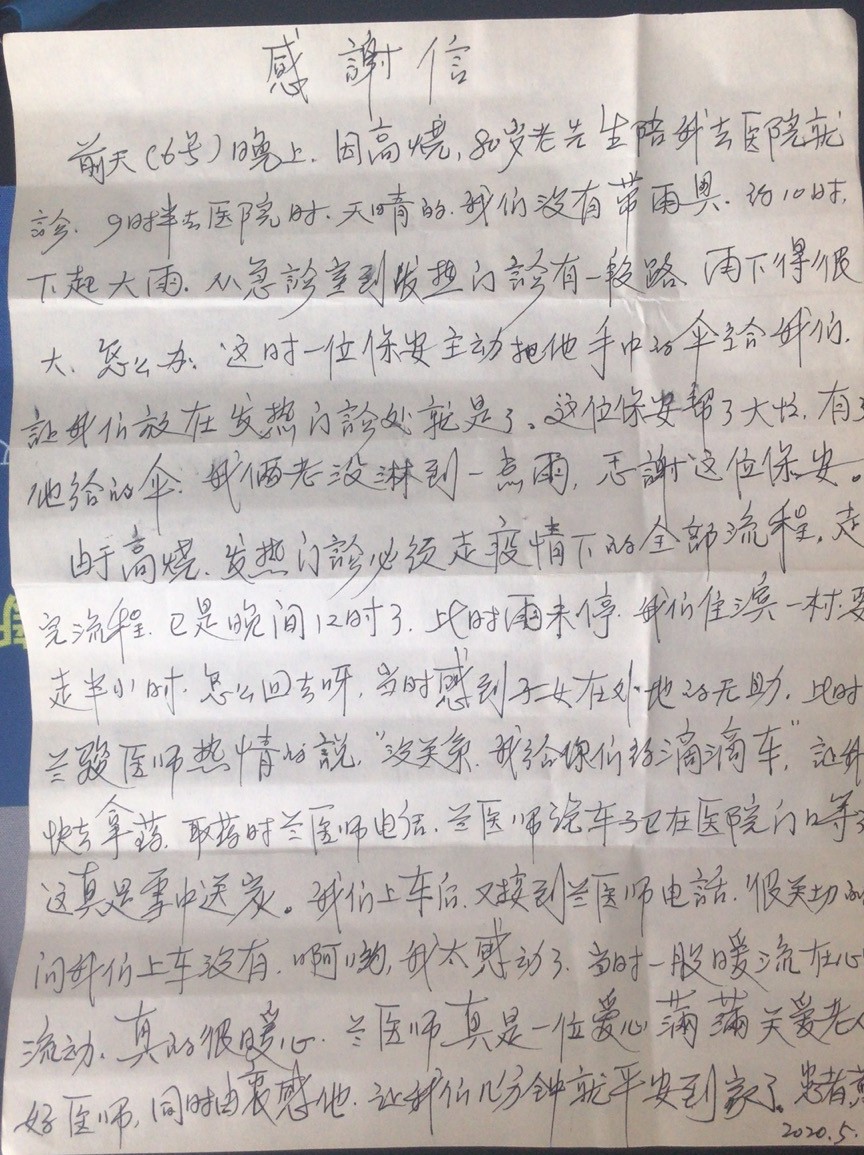 感謝信
前天(6号)晚上.因高燒,80岁老先生陪我去医院就
診.9时半去医院时.天晴的.我们没有带雨具.约10时,
下起大雨.从急診室到发热门診有一段路 雨下得很
大、怎么办、这时一位保安主动把他手中的伞给我们.
让我们放在发热门診处就是了。这位保安帮了大忙.有了
他给的伞.我俩老没淋到一点雨,忠謝这位保安。
由于高燒.发热门診必须走疫情下的全部流程,走
完流程.已是晚间12时了.此时雨未停.我们住滨一村要
走半小时.怎么回去呀,当时感到子女在外地的无助.此时
兰骏医师热情的説,"没关系.我给你们约滴滴车",让我
快去拿葯.取葯时兰医师电话.兰医师说车子已在医院门口等了
这真是雪中送炭。我们上车后.又接到兰医师电話.很关切的
问我们上车没有.啊哟,我太感动了.当时一股暖流在心
流动、真的很暖心.兰医师真是一位爱心满满关爱老人
好医师,同时由衷感他.让我们几分钟就平安到家了。患者
2020.5.